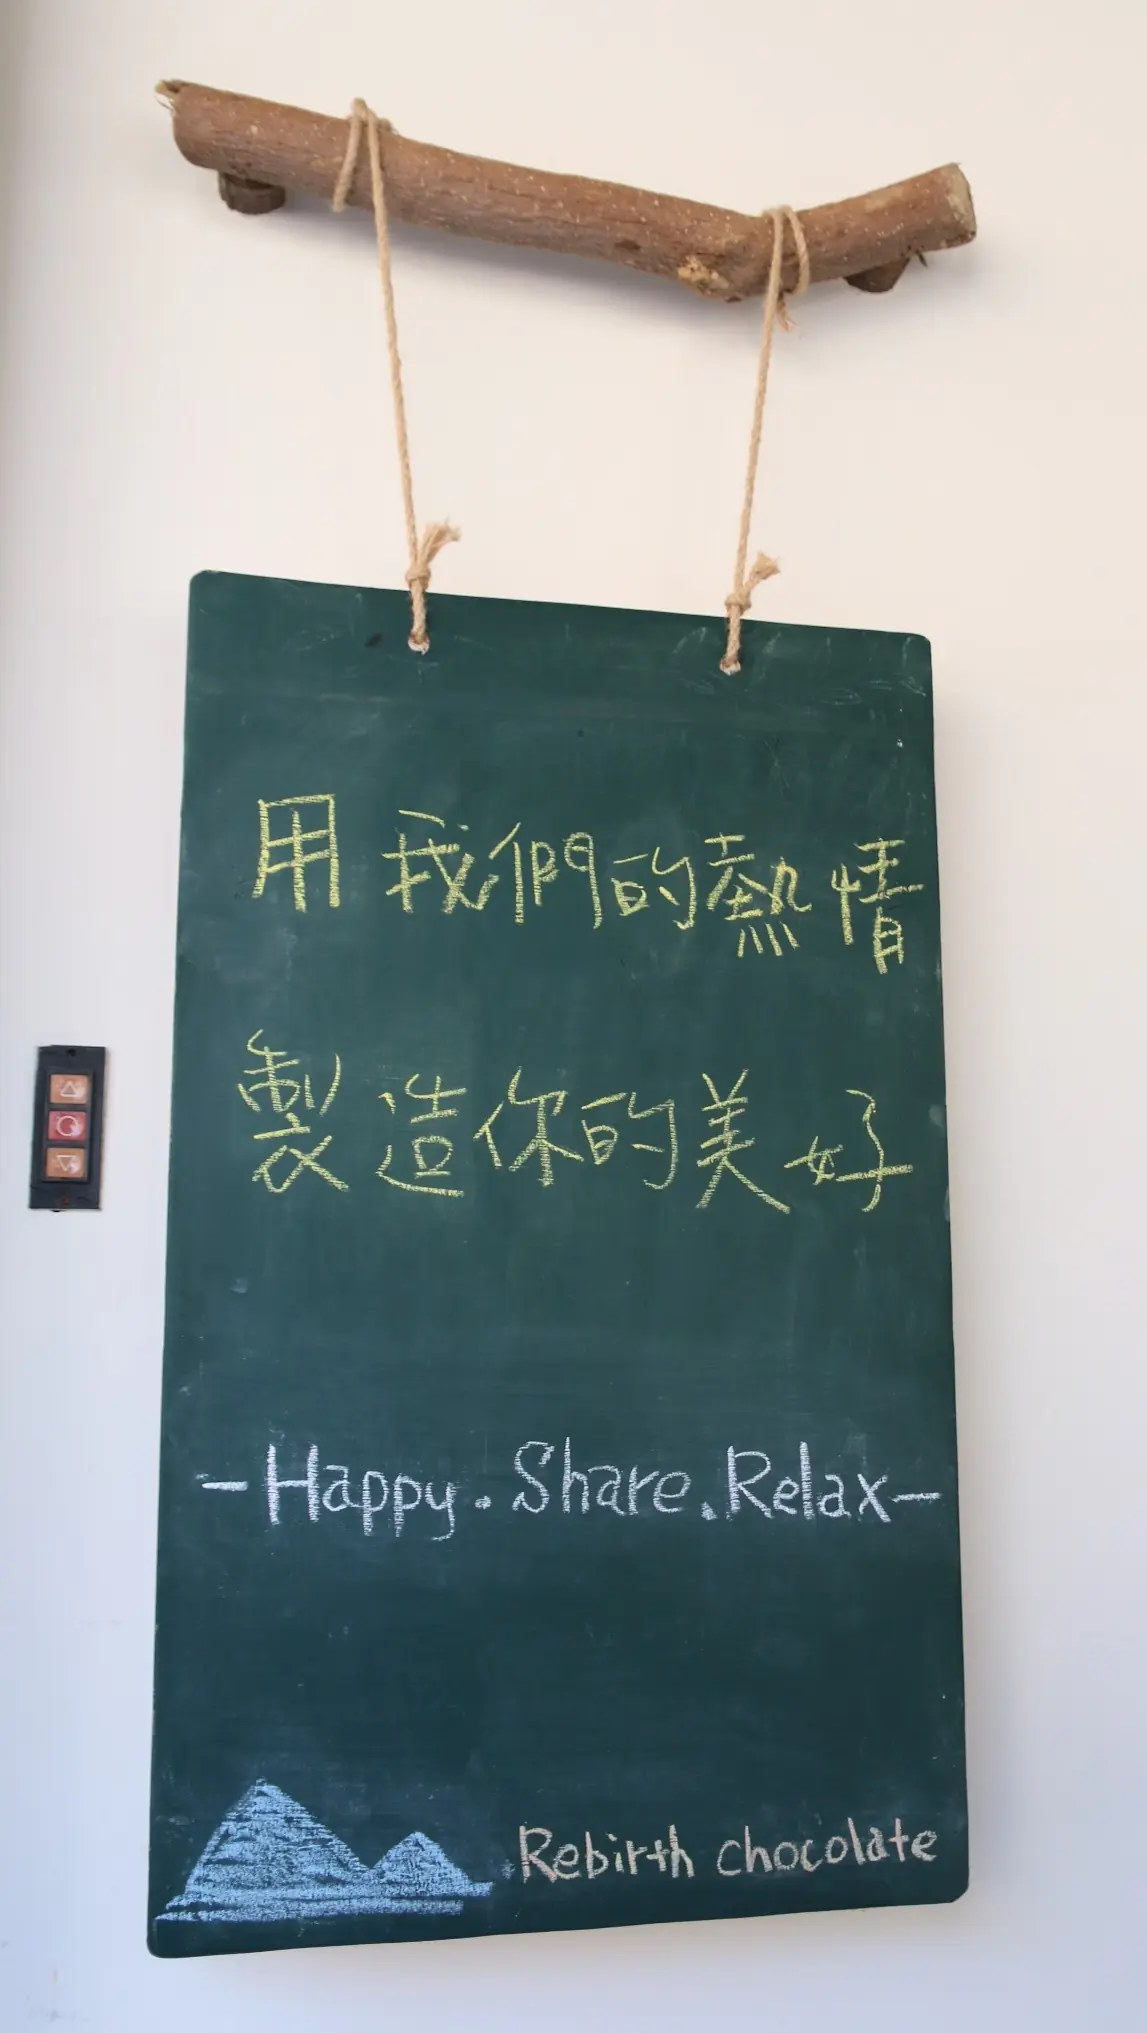 用我們的熱情
製造你的美好
-Happy.Share.Relax-
Rebirth chocolate